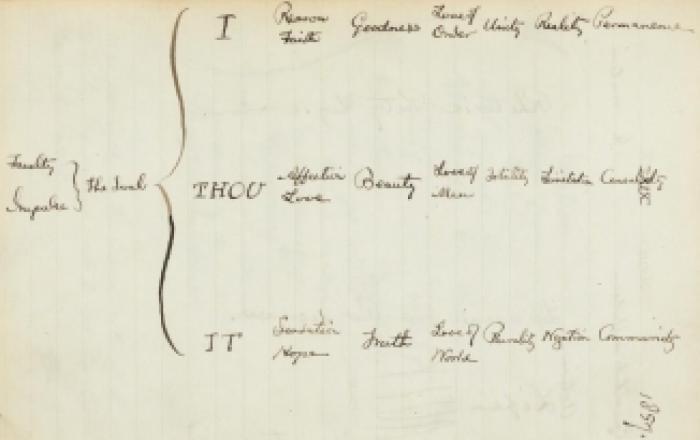 I Reason Goodness Love of Unity Reality Permanence
Faith Order
Faculty THOU Affection Beauty Love of Totality Limitation Causality
Impulse The Soul Love Men
IT Sensation Truth Love of Plurality Negation Community
Hope World
1857